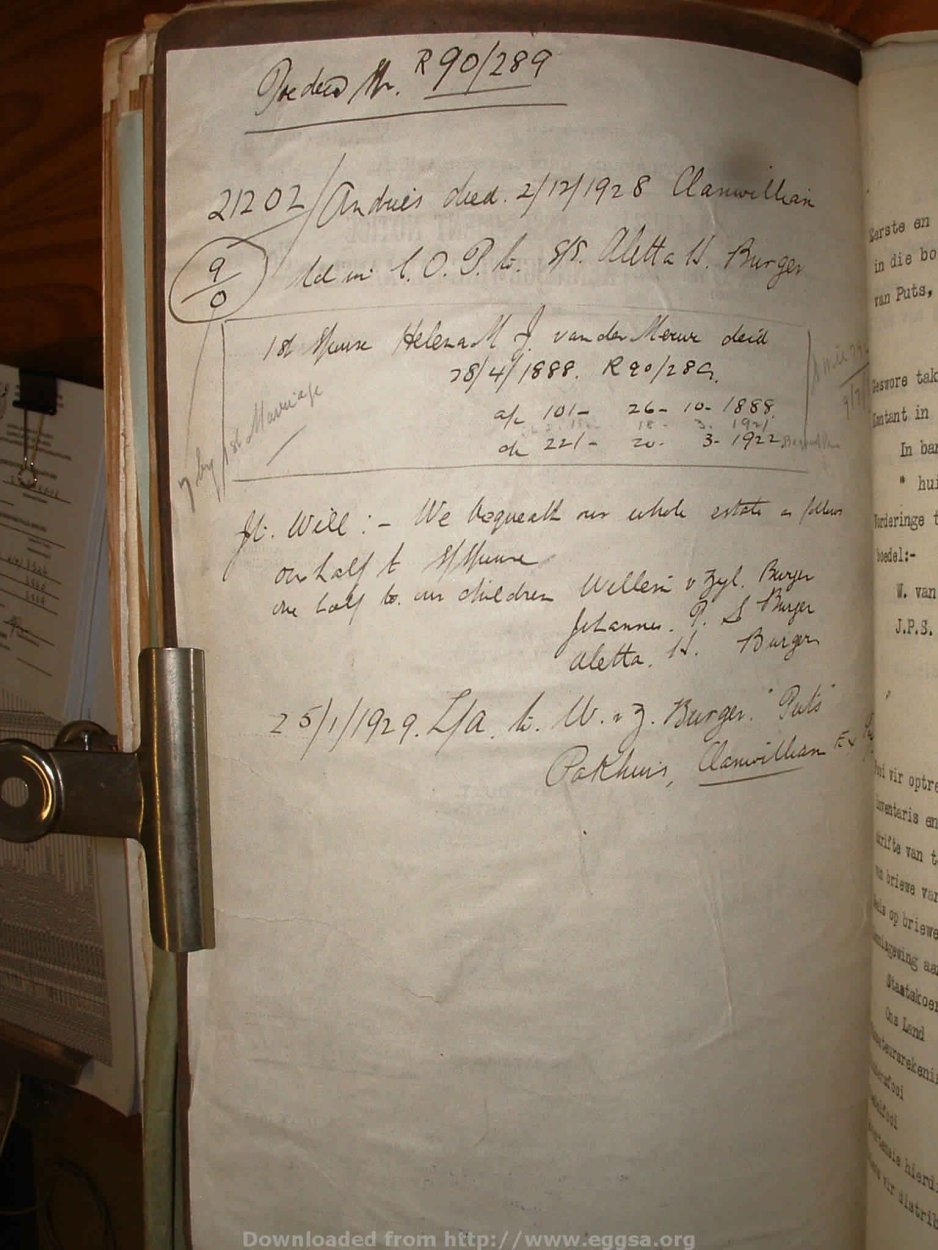 Predecd Mr. R90/289
21202 / Andries died. 2/12/1928 Clanwilliam
9/0 Md in C.O.P. to. S/S. Aletta H. Burger
1st Spouse Helena M J. van der Merwe decd
28/4/1888. R90/289.
a/c 101- 26-10-1888
do 221- 20- 3-1922
7 by 1st Marriage
Jt. Will :- We bequeath our whole estate as follows
one half to S/Spouse
one half to. our children Willem v Zyl. Burger
Johannes. P. S Burger
Aletta. H. Burger
25/1/1929. L/A. to. W. v Z. Burger. "Puts"
Pakhuis, Clanwilliam Ex
Eerste en
in die bo
van Puts,
Geswore tak
Kontant in
In ban
" hui
Vorderinge t
boedel:-
W. van
J.P.S.
"
vir optre
inventaris en
skrifte van t
briewe van
op briewe
aa
Staatskoer
Ons Land
hierd
vir distrib
Downloaded from http://www.eggsa.org